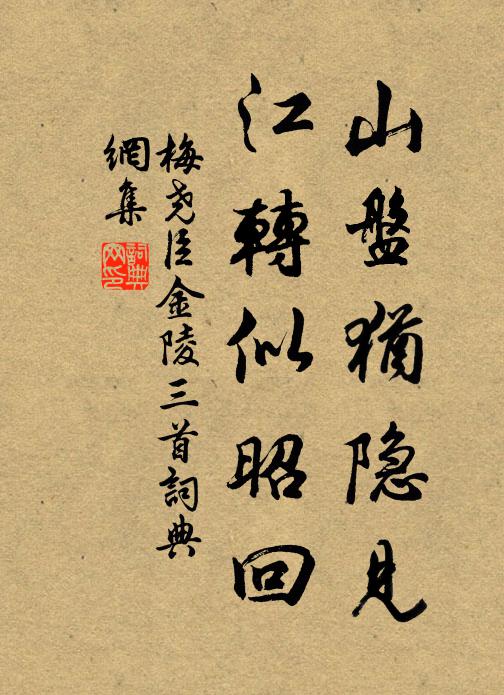 山盤猶隐見
江轉似昭回
梅尧臣金陵三首詞典
網集
詞典網印